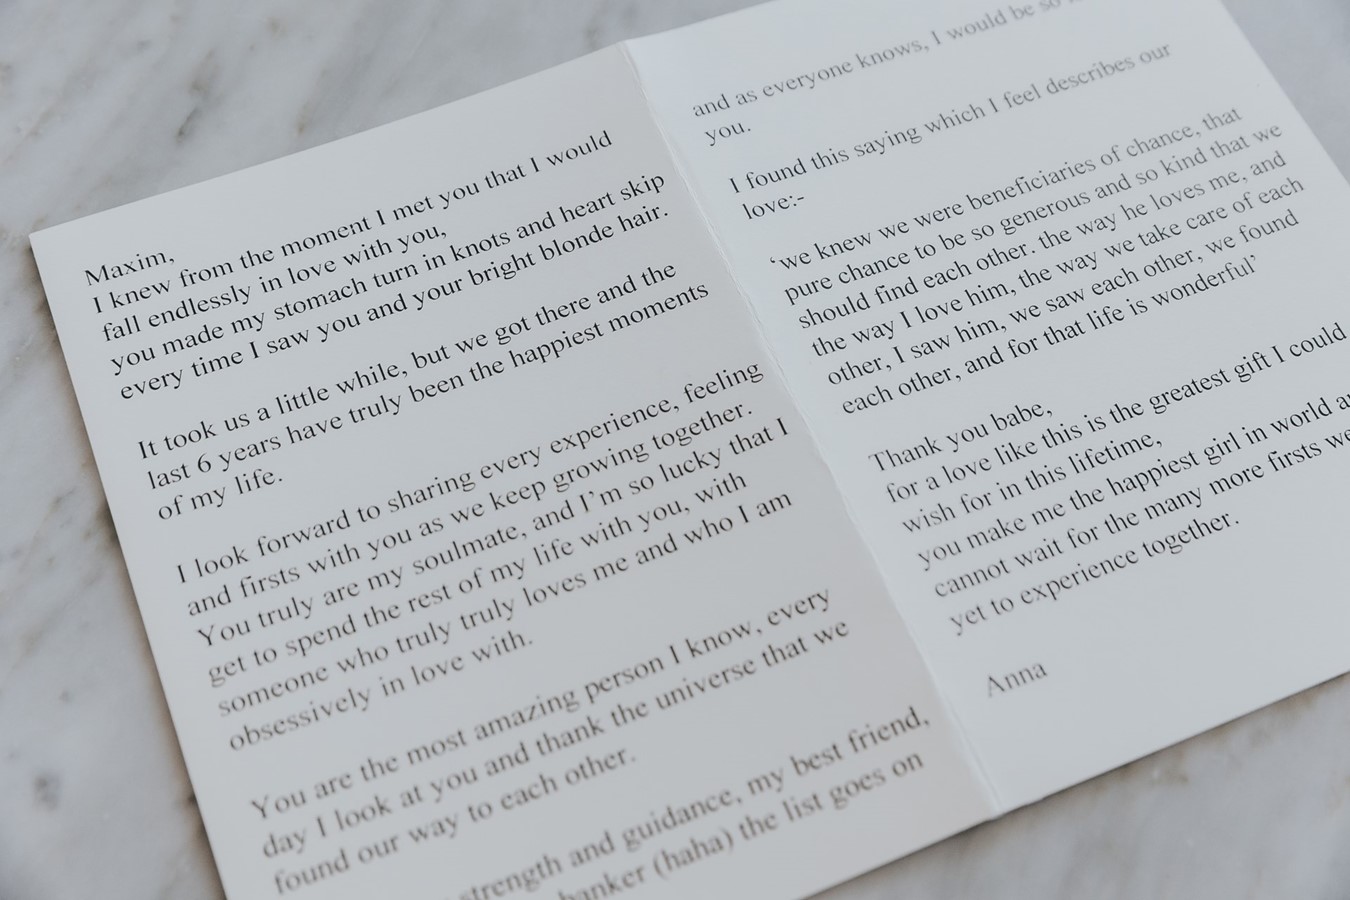 Maxim,
I knew from the moment I met you that I would
fall endlessly in love with you,
you made my stomach turn in knots and heart skip
every time I saw you and your bright blonde hair.
It took us a little while, but we got there and the
last 6 years have truly been the happiest moments
of my life.
I look forward to sharing every experience, feeling
and firsts with you as we keep growing together.
You truly are my soulmate, and I'm so lucky that I
get to spend the rest of my life with you, with
someone who truly truly loves me and who I am
obsessively in love with.
You are the most amazing person I know, every
day I look at you and thank the universe that we
found our way to each other.
strength and guidance, my best friend,
banker (haha) the list goes on
and as everyone knows, I would be so
you.
I found this saying which I feel describes our
love:-
‘we knew we were beneficiaries of chance, that
pure chance to be so generous and so kind that we
should find each other. the way he loves me, and
the way I love him, the way we take care of each
other, I saw him, we saw each other, we found
each other, and for that life is wonderful’
Thank you babe,
for a love like this is the greatest gift I could
wish for in this lifetime,
you make me the happiest girl in world
cannot wait for the many more firsts
yet to experience together.
Anna